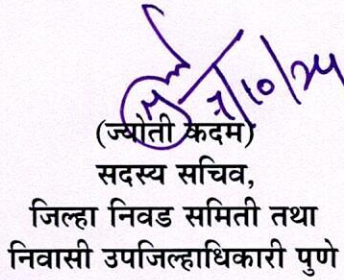 (ज्योती कदम)
सदस्य सचिव,
जिल्हा निवड समिती तथा
निवासी उपजिल्हाधिकारी पुणे